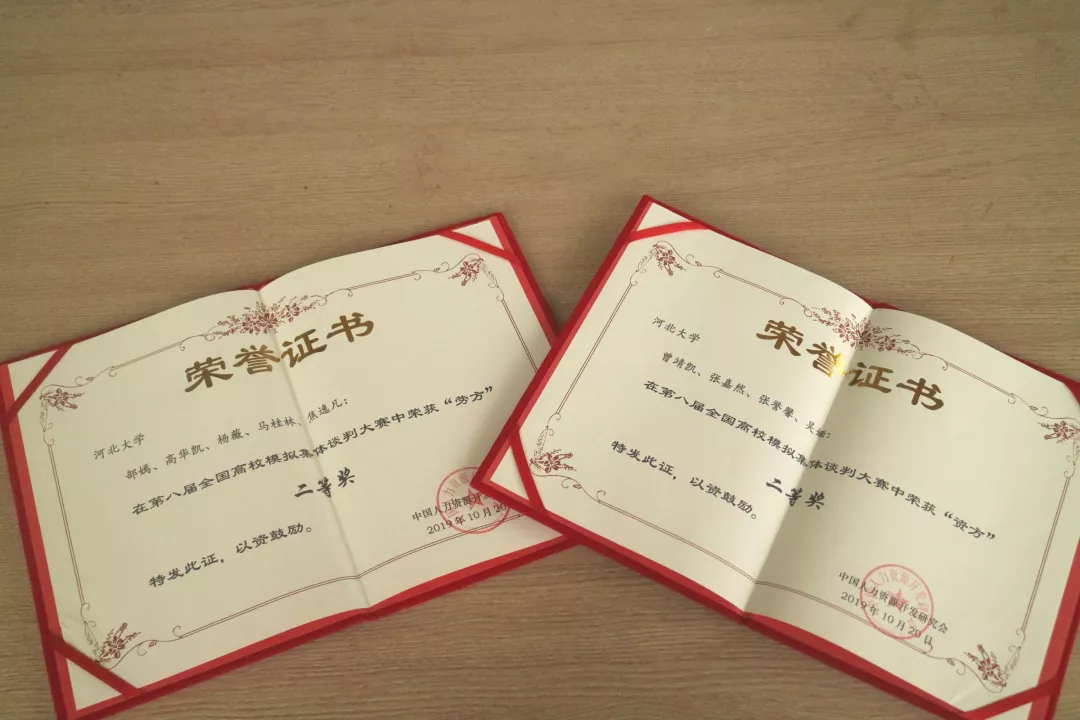 荣誉证书
河北大学
郜嫣、高华凯、杨薇、马桂林、焦逸凡：
在第八届全国高校模拟集体谈判大赛中荣获“劳方”
二等奖
特发此证，以资鼓励。
中国人力资源开
2019年10月20
荣誉证书
河北大学
曾靖凯、张嘉然、张誉馨、吴
在第八届全国高校模拟集体谈判大赛中荣获“资方”
二等奖
特发此证，以资鼓励。
中国人力资源开发研究会
2019年10月20日